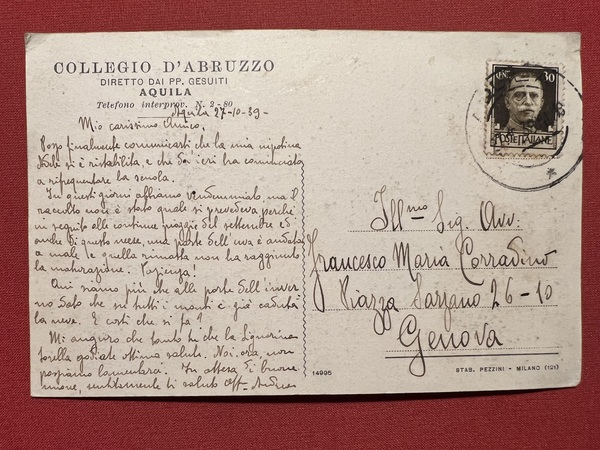 COLLEGIO D'ABRUZZO
DIRETTO DAI PP. GESUITI
AQUILA
Telefono interprov. N. 2-80
Aquila 27-10-39-
Mio carissimo Amico,
Posso finalmente comunicarti che la mia nipotina
si è ristabilita, e che da ieri ha cominciato
a rifrequentare la scuola.
In questi giorni abbiamo vendemmiato, ma il
raccolto non è stato quale si prevedeva perché
in seguito alle continue piogge del settembre ed
anche di questo mese, una parte dell'uva è andata
a male e quella rimasta non ha raggiunto
la maturazione. Pazienza!
Qui siamo più che alla porte dell'inver
no dato che su tutti i monti è già caduta
la neve. E costì che si fa?
Mi auguro che tanto tu che la Signorina
sorella godiate ottima salute. Noi, ora, non
possiamo lamentarci. In attesa di buone
nuove, sentitamente ti saluto aff. Andrea
CENT. 30
POSTE ITALIANE
Ill.mo Sig. Avv.
Francesco Maria Corradino
Piazza Sarzano 26-10
Genova
14995
STAB. PEZZINI - MILANO (121)